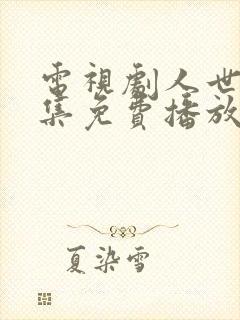 電視劇人世
集免費播放
夏染雪